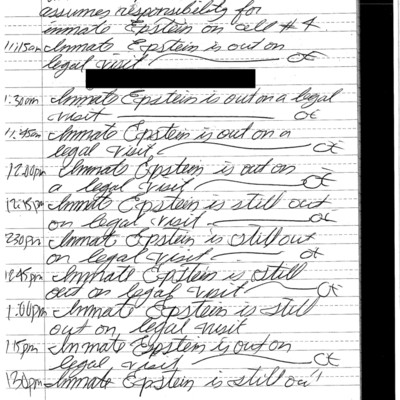 assumes responsibility for
inmate Epstein on cell #4
11:15am Inmate Epstein is out on
legal visit
1:30am Inmate Epstein is out on a legal
visit CE
11:45am Inmate Epstein is out on a
legal visit CE
12:00pm Inmate Epstein is out on
a legal visit CE
12:15pm Inmate Epstein is still out
on legal visit CE
230pm Inmate Epstein is still out
on legal visit CE
12:45pm Inmate Epstein is still
out on legal visit CE
1:00pm Inmate Epstein is still
out on legal visit
115pm Inmate Epstein is out on
legal visit CE
130pm Inmate Epstein is still out